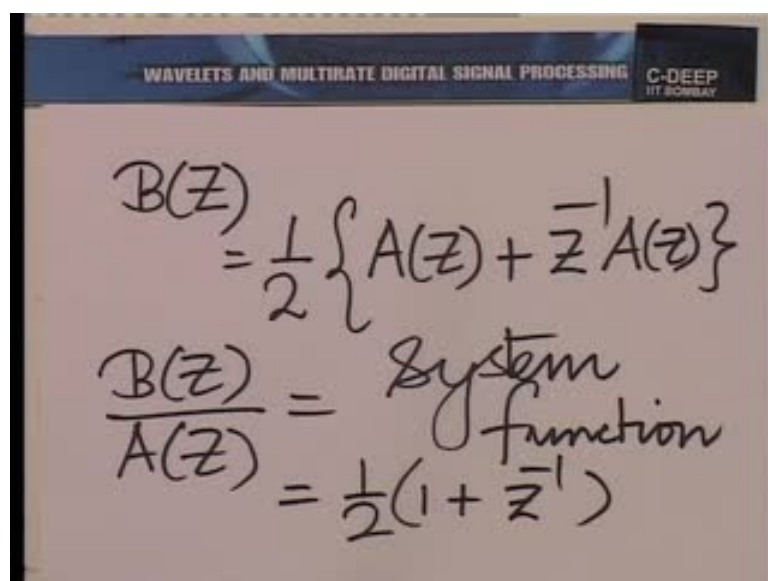 WAVELETS AND MULTIRATE DIGITAL SIGNAL PROCESSING
C-DEEP
IIT BOMBAY
B(Z)
= 1/2 { A(Z) + Z^-1 A(Z) }
B(Z)/A(Z) = System function
= 1/2 (1 + Z^-1)